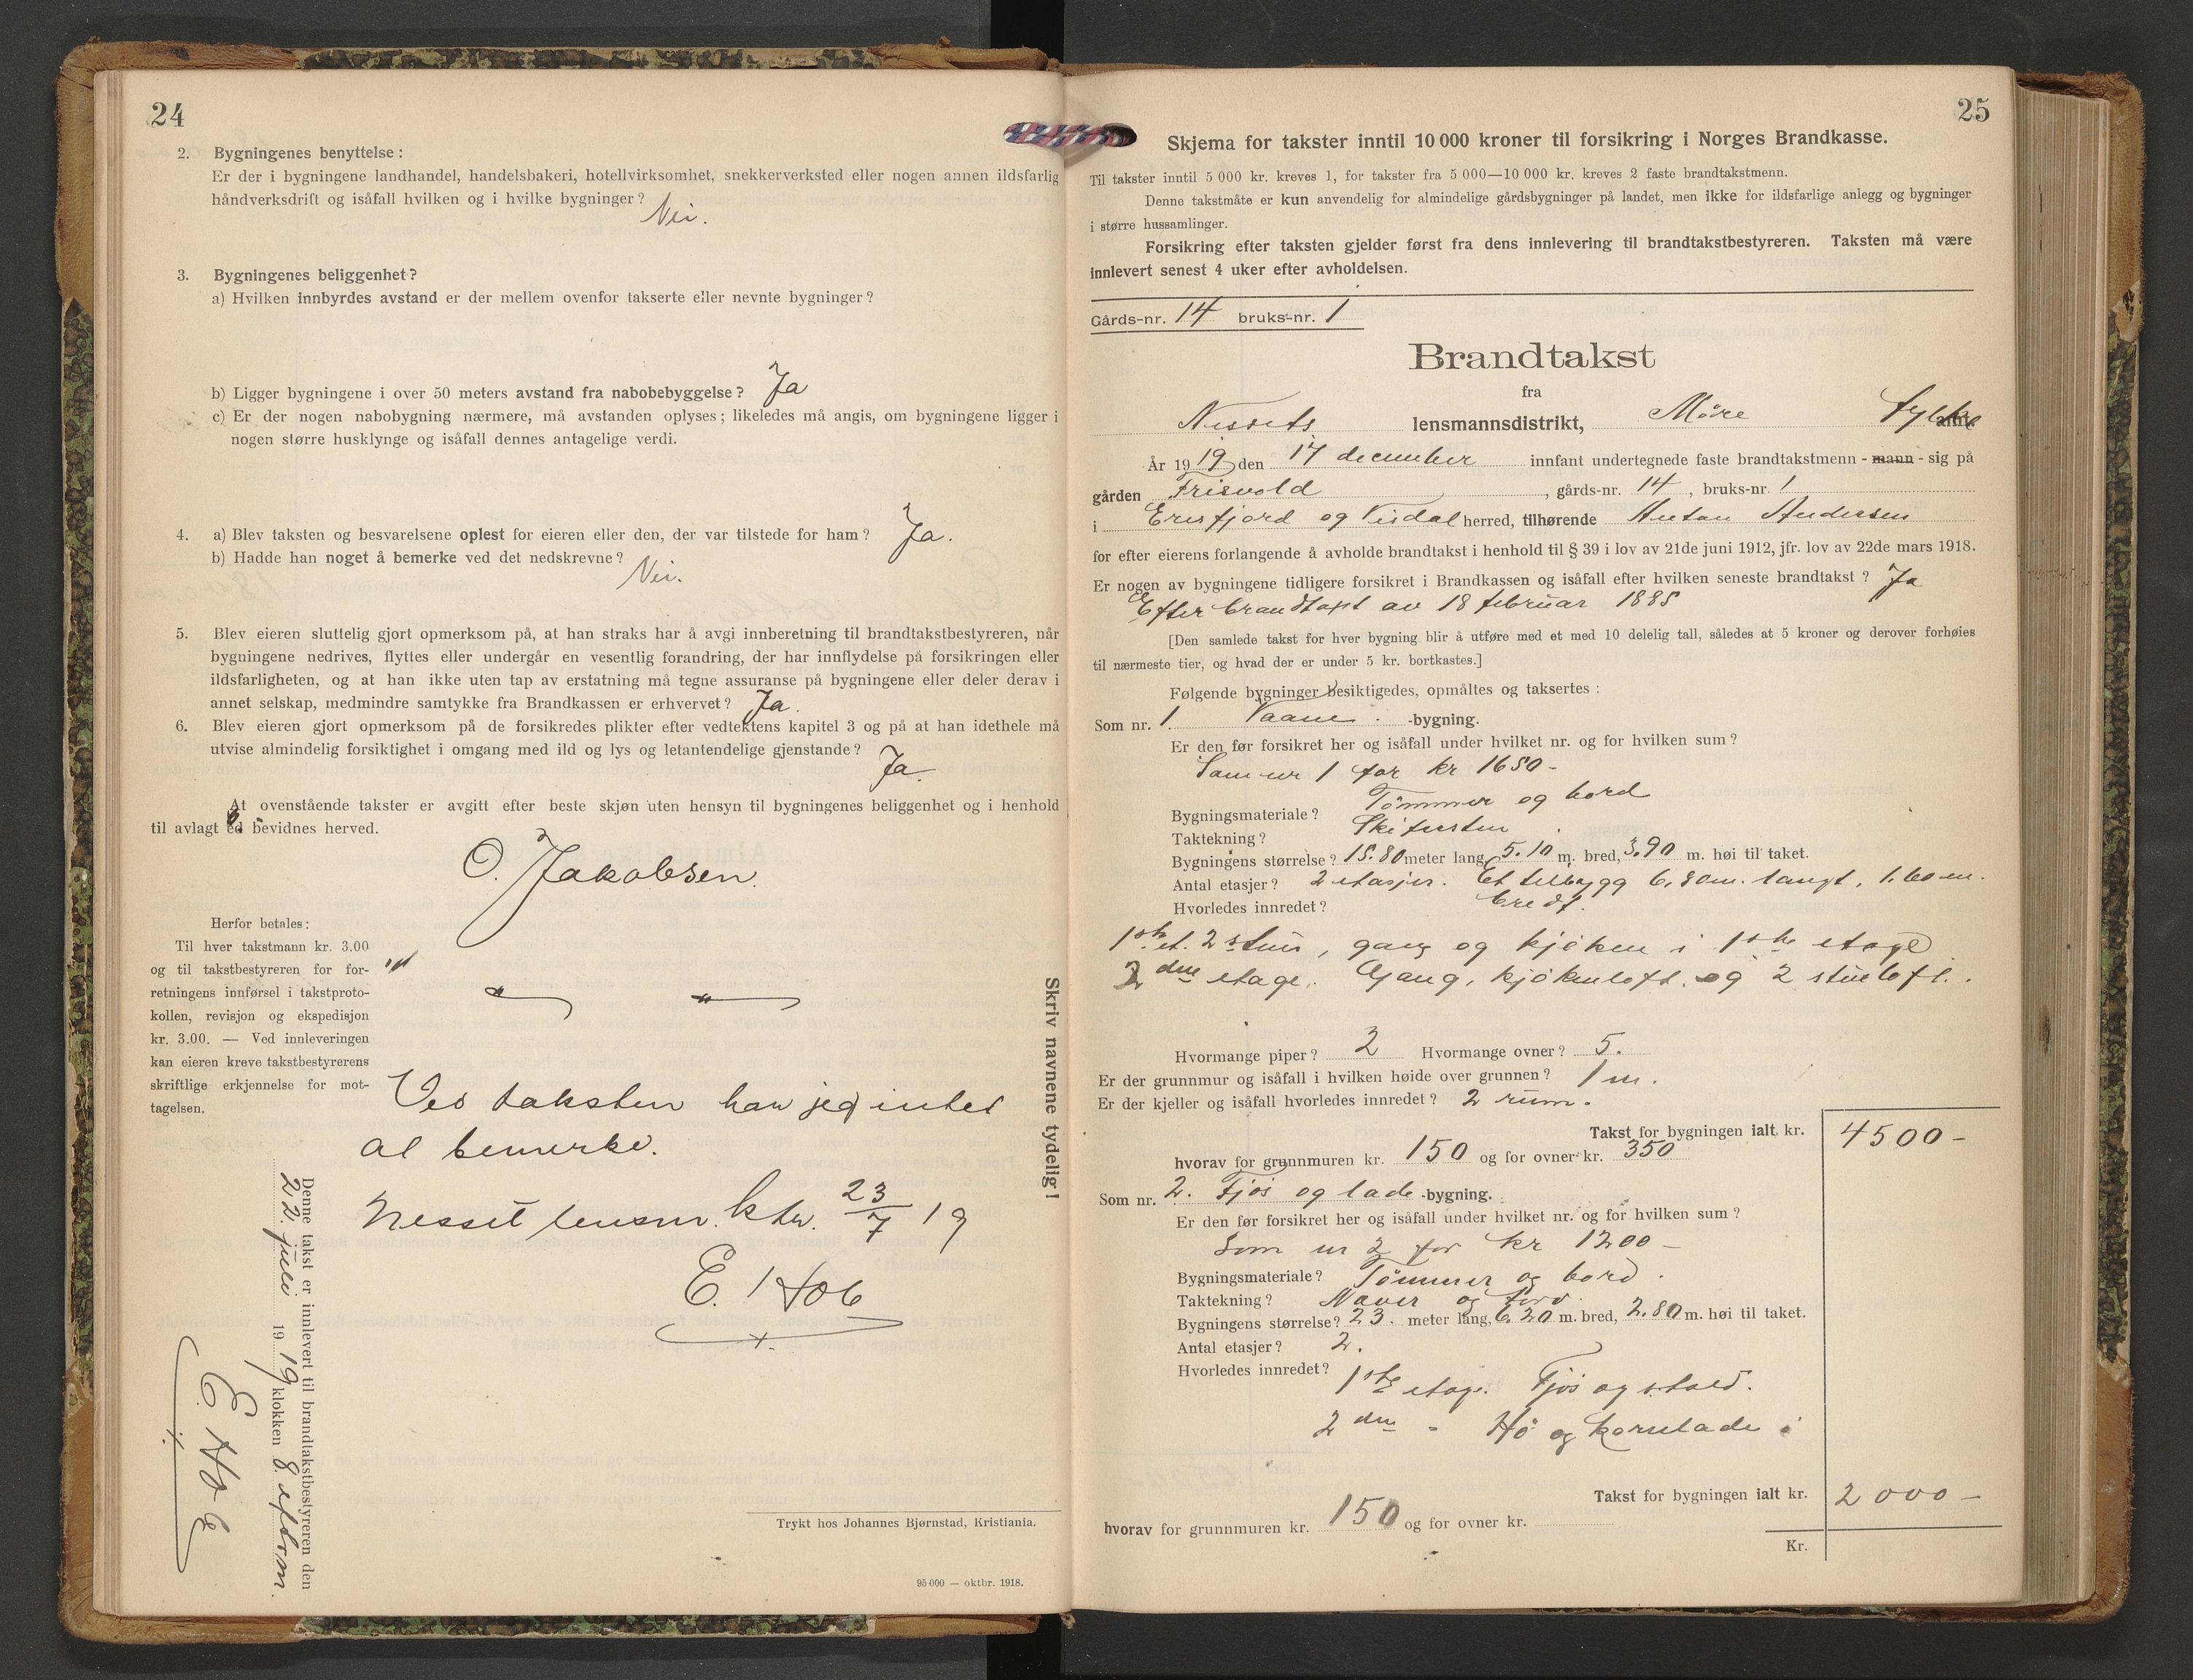 24
2. Bygningenes benyttelse:
Er der i bygningene landhandel, handelsbakeri, hotellvirksomhet, snekkerverksted eller nogen annen ildsfarlig
håndverksdrift og isåfall hvilken og i hvilke bygninger? Nei.
3. Bygningenes beliggenhet?
a) Hvilken innbyrdes avstand er der mellem ovenfor takserte eller nevnte bygninger?
b) Ligger bygningene i over 50 meters avstand fra nabobebyggelse? Ja
c) Er der nogen nabobygning nærmere, må avstanden oplyses; likeledes må angis, om bygningene ligger i
nogen større husklynge og isåfall dennes antagelige verdi.
4. a) Blev taksten og besvarelsene oplest for eieren eller den, der var tilstede for ham? Ja.
b) Hadde han noget å bemerke ved det nedskrevne? Nei.
5. Blev eieren sluttelig gjort opmerksom på, at han straks har å avgi innberetning til brandtakstbestyreren, når
bygningene nedrives, flyttes eller undergår en vesentlig forandring, der har innflydelse på forsikringen eller
ildsfarligheten, og at han ikke uten tap av erstatning må tegne assuranse på bygningene eller deler derav i
annet selskap, medmindre samtykke fra Brandkassen er erhvervet? Ja.
6. Blev eieren gjort opmerksom på de forsikredes plikter efter vedtektens kapitel 3 og på at han idethele må
utvise almindelig forsiktighet i omgang med ild og lys og letantendelige gjenstande? Ja.
At ovenstående takster er avgitt efter beste skjøn uten hensyn til bygningenes beliggenhet og i henhold
til avlagt ed bevidnes herved.
O. Jakobsen.
Herfor betales:
Til hver takstmann kr. 3.00
og til takstbestyreren for for-
retningens innførsel i takstproto-
kollen, revisjon og ekspedisjon
kr. 3.00. — Ved innleveringen
kan eieren kreve takstbestyrerens
skriftlige erkjennelse for mot-
tagelsen.
" "
Skriv navnene tydelig!
Ved taksten har jeg intet
at bemerke.
Nesset lensm. ktr. 23/7 19
E. Hob
Denne takst er innlevert til brandtakstbestyreren den
22 juli 1919 klokken 8 efterm.
E Hob
Trykt hos Johannes Bjørnstad, Kristiania.
95 000 — oktbr. 1918.
25
Skjema for takster inntil 10 000 kroner til forsikring i Norges Brandkasse.
Til takster inntil 5 000 kr. kreves 1, for takster fra 5 000—10 000 kr. kreves 2 faste brandtakstmenn.
Denne takstmåte er kun anvendelig for almindelige gårdsbygninger på landet, men ikke for ildsfarlige anlegg og bygninger
i større hussamlinger.
Forsikring efter taksten gjelder først fra dens innlevering til brandtakstbestyreren. Taksten må være
innlevert senest 4 uker efter avholdelsen.
Gårds-nr. 14 bruks-nr. 1
Brandtakst
fra
Nessets lensmannsdistrikt, Möre fylke amt.
År 1919 den 17 december innfant undertegnede faste brandtakstmenn - mann - sig på
gården Frisvold, gårds-nr. 14, bruks-nr. 1
i Eresfjord og Visdal herred, tilhørende Anton Andersen
for efter eierens forlangende å avholde brandtakst i henhold til § 39 i lov av 21de juni 1912, jfr. lov av 22de mars 1918.
Er nogen av bygningene tidligere forsikret i Brandkassen og isåfall efter hvilken seneste brandtakst? Ja
Efter brandtaxt av 18 februar 1885
[Den samlede takst for hver bygning blir å utføre med et med 10 delelig tall, således at 5 kroner og derover forhøies
til nærmeste tier, og hvad der er under 5 kr. bortkastes.]
Følgende bygninger besiktigedes, opmåltes og taksertes:
Som nr. 1 Vaane -bygning.
Er den før forsikret her og isåfall under hvilket nr. og for hvilken sum?
Som nr 1 for kr 1650 -
Bygningsmateriale? Tömmer og bord
Taktekning? Skifersten
Bygningens størrelse? 15.80 meter lang, 5.10 m. bred, 3.90 m. høi til taket.
Antal etasjer? 2 etasjer. Et tilbygg 6.80m. langt, 1.60 m.
Hvorledes innredet? bredt.
1ste et. 2 stuer, gang og kjöken i 1ste etage
2den etage. Gang, kjökenloft og 2 stueloft.
Hvormange piper? 2 Hvormange ovner? 5.
Er der grunnmur og isåfall i hvilken høide over grunnen? 1 m.
Er der kjeller og isåfall hvorledes innredet? 2 rum.
Takst for bygningen ialt kr. 4500 -
hvorav for grunnmuren kr. 150 og for ovner kr. 350
Som nr. 2. Fjös og lade -bygning.
Er den før forsikret her og isåfall under hvilket nr. og for hvilken sum?
Som nr 2 for kr 1200 -
Bygningsmateriale? Tömmer og bord.
Taktekning? Næver og torv
Bygningens størrelse? 23. meter lang, 6.20 m. bred, 2.80 m. høi til taket.
Antal etasjer? 2.
Hvorledes innredet? 1ste etage. Fjös og stald.
2den - Hö og kornlade
Takst for bygningen ialt kr. 2000 -
hvorav for grunnmuren kr. 150 og for ovner kr.
Kr.